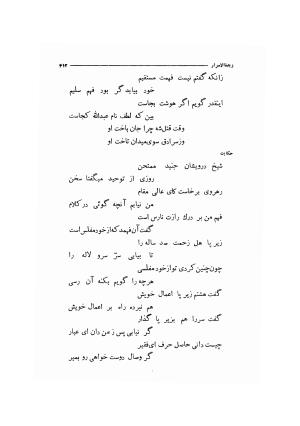 زبدةالاسرار
۴۱۳
زانکه گفتم نیست فهمت مستقیم
خود بیاید گر بود فهم سلیم
اینقدر گویم اگر هوشت بجاست
بین که لطف نام عبدالله کجاست
وقت قتل شه چرا جان باخت او
وز سرادق سوی میدان تاخت او
حکایت
شیخ درویشان جنید ممتحن
روزی از توحید میگفتا سخن
رهروی برخاست کای عالی مقام
من نیابم آنچه گوئی در کلام
فهم من بر درك رازت نارس است
گفت آن فهمد که از خود مفلس است
زیر پا هل زحمت صد ساله را
تا بیابی سرّ سرو لاله را
چون چنین کردی تو از خود مفلسی
هرچه را گویم بکنه آن رسی
گفت هشتم زیر پا اعمال خویش
هم نبرده راه بر اعمال خویش
گفت سر را هم بزیر پا گذار
گر نیابی پس ز من دان ای عیار
چیست دانی حاصل حرف ای فقیر
گر وصال دوست خواهی رو بمیر